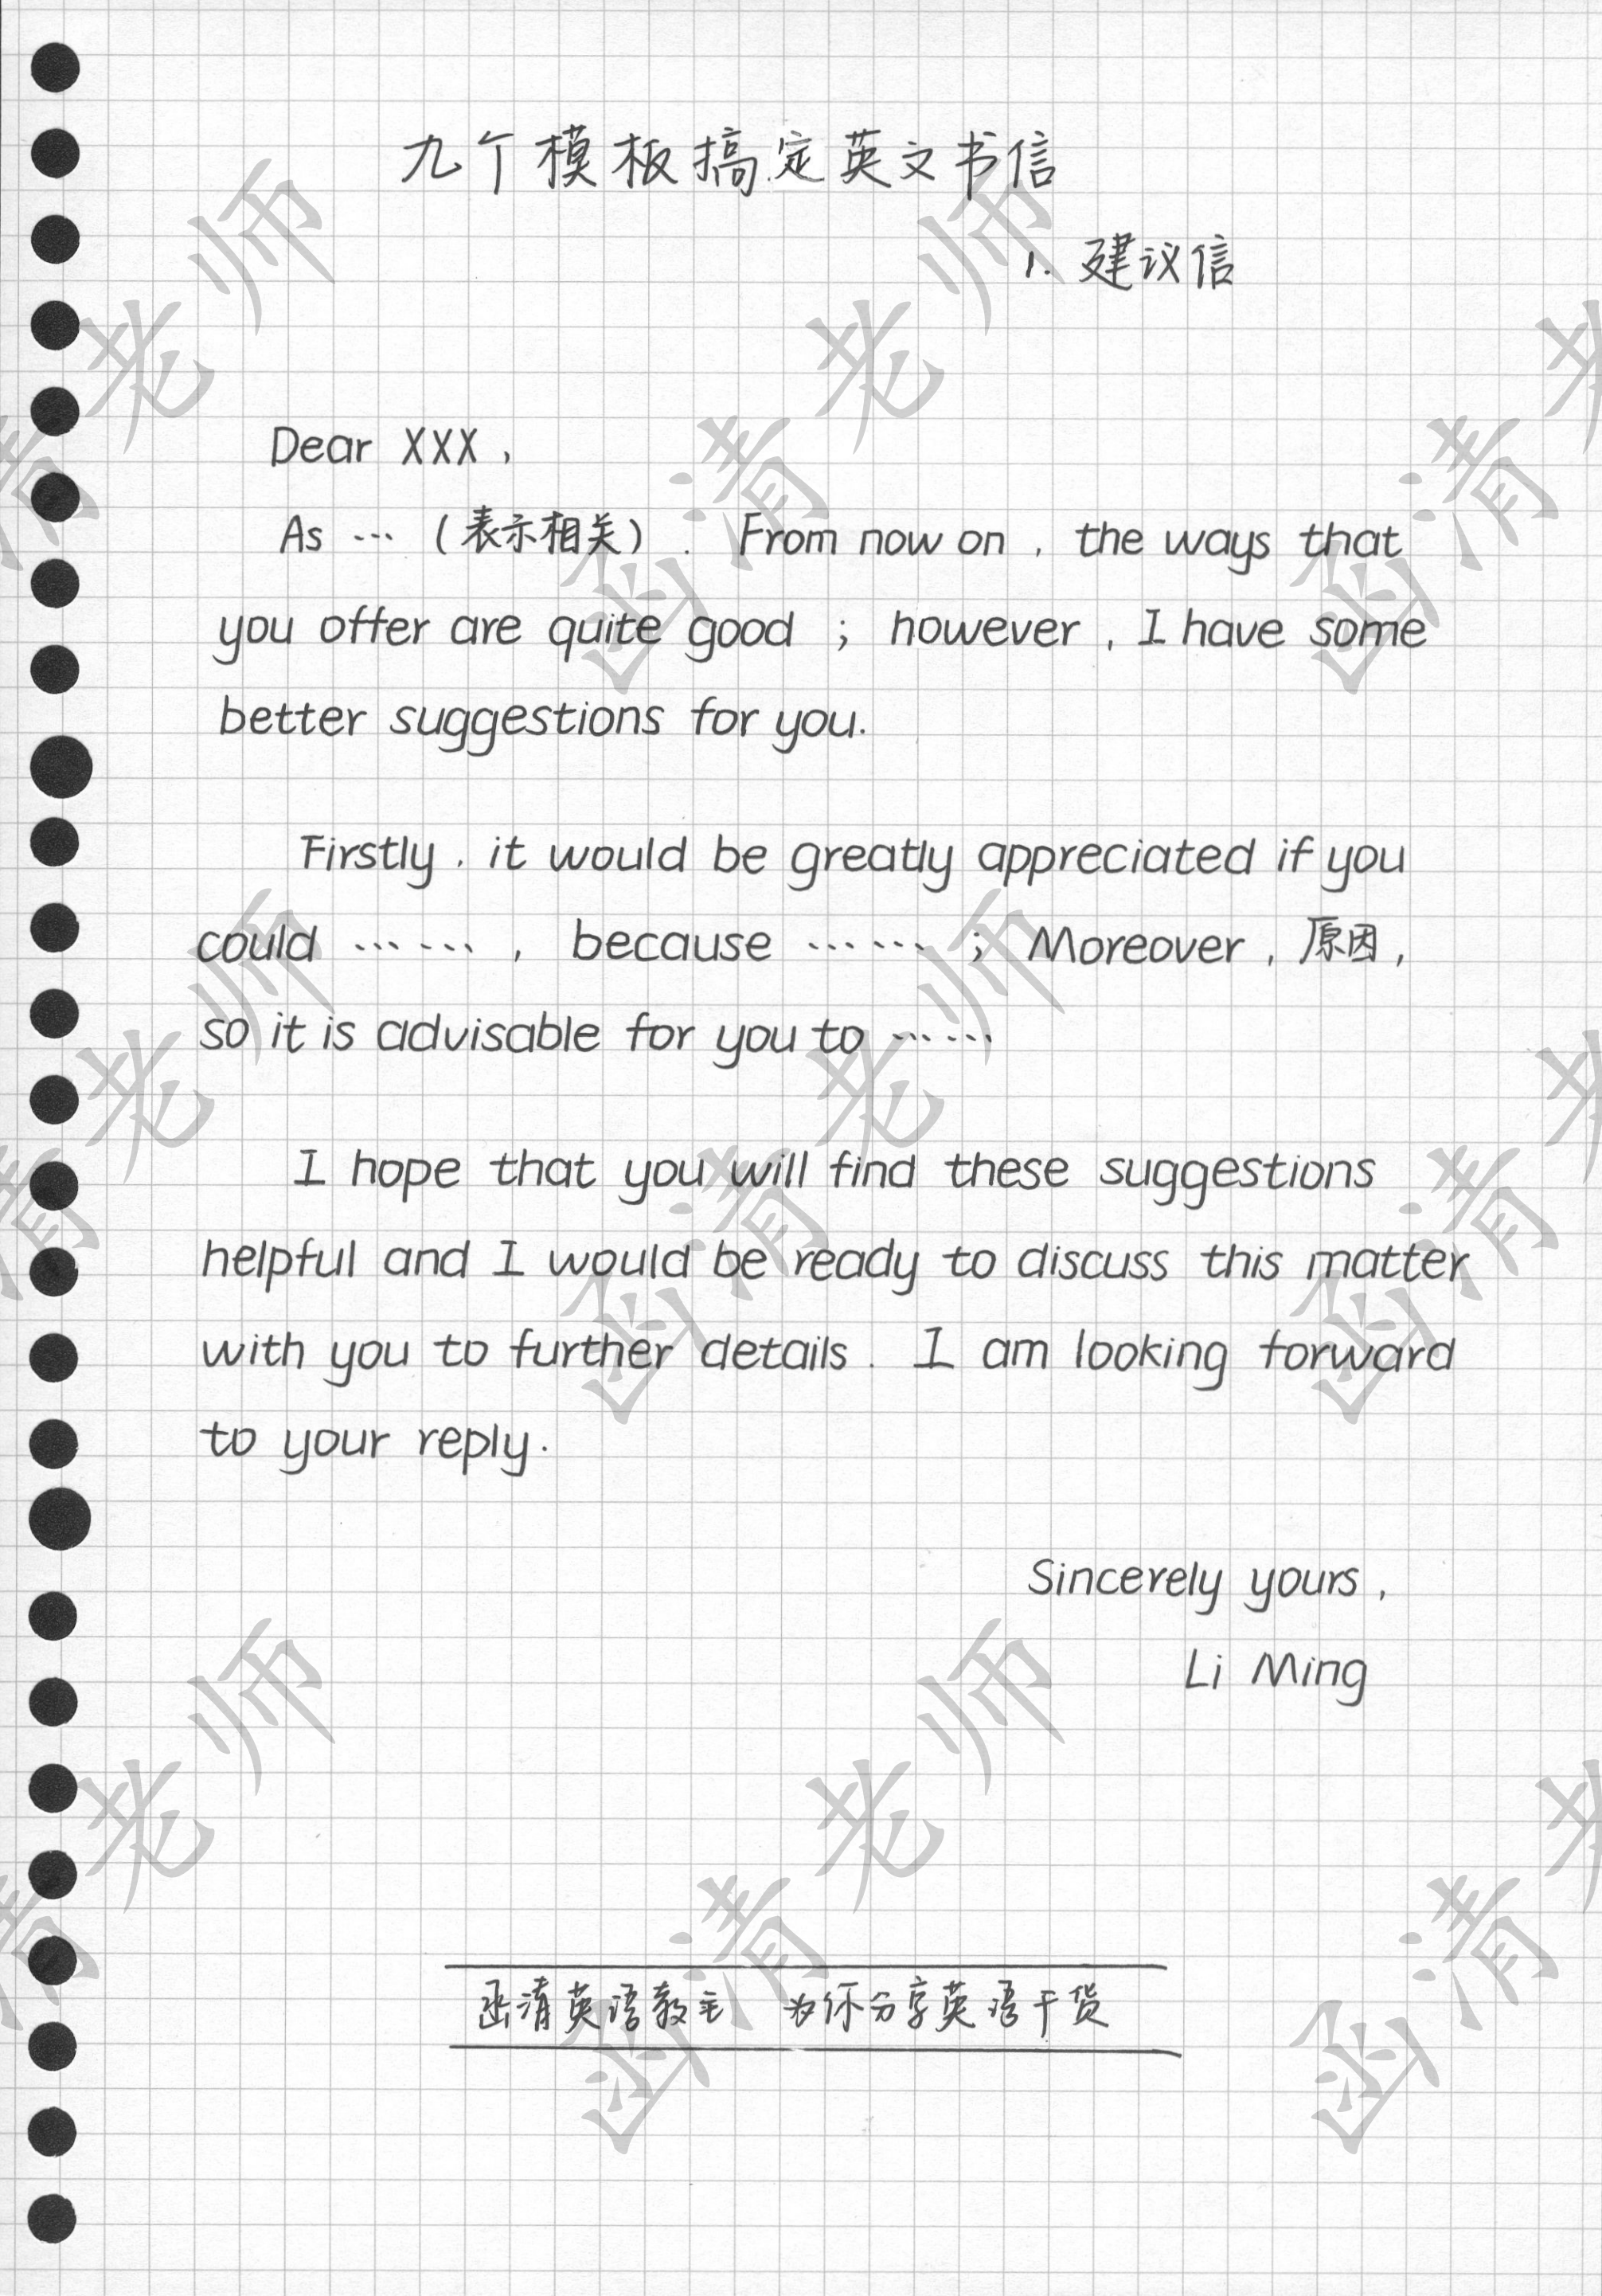 九个模板搞定英文书信
1. 建议信
Dear XXX,
As … (表示相关). From now on, the ways that
you offer are quite good ; however, I have some
better suggestions for you.
Firstly, it would be greatly appreciated if you
could ……, because …… ; Moreover, 原因,
so it is advisable for you to ……
I hope that you will find these suggestions
helpful and I would be ready to discuss this matter
with you to further details. I am looking forward
to your reply.
Sincerely yours,
Li Ming
函清英语教主 为你分享英语干货
函清老师